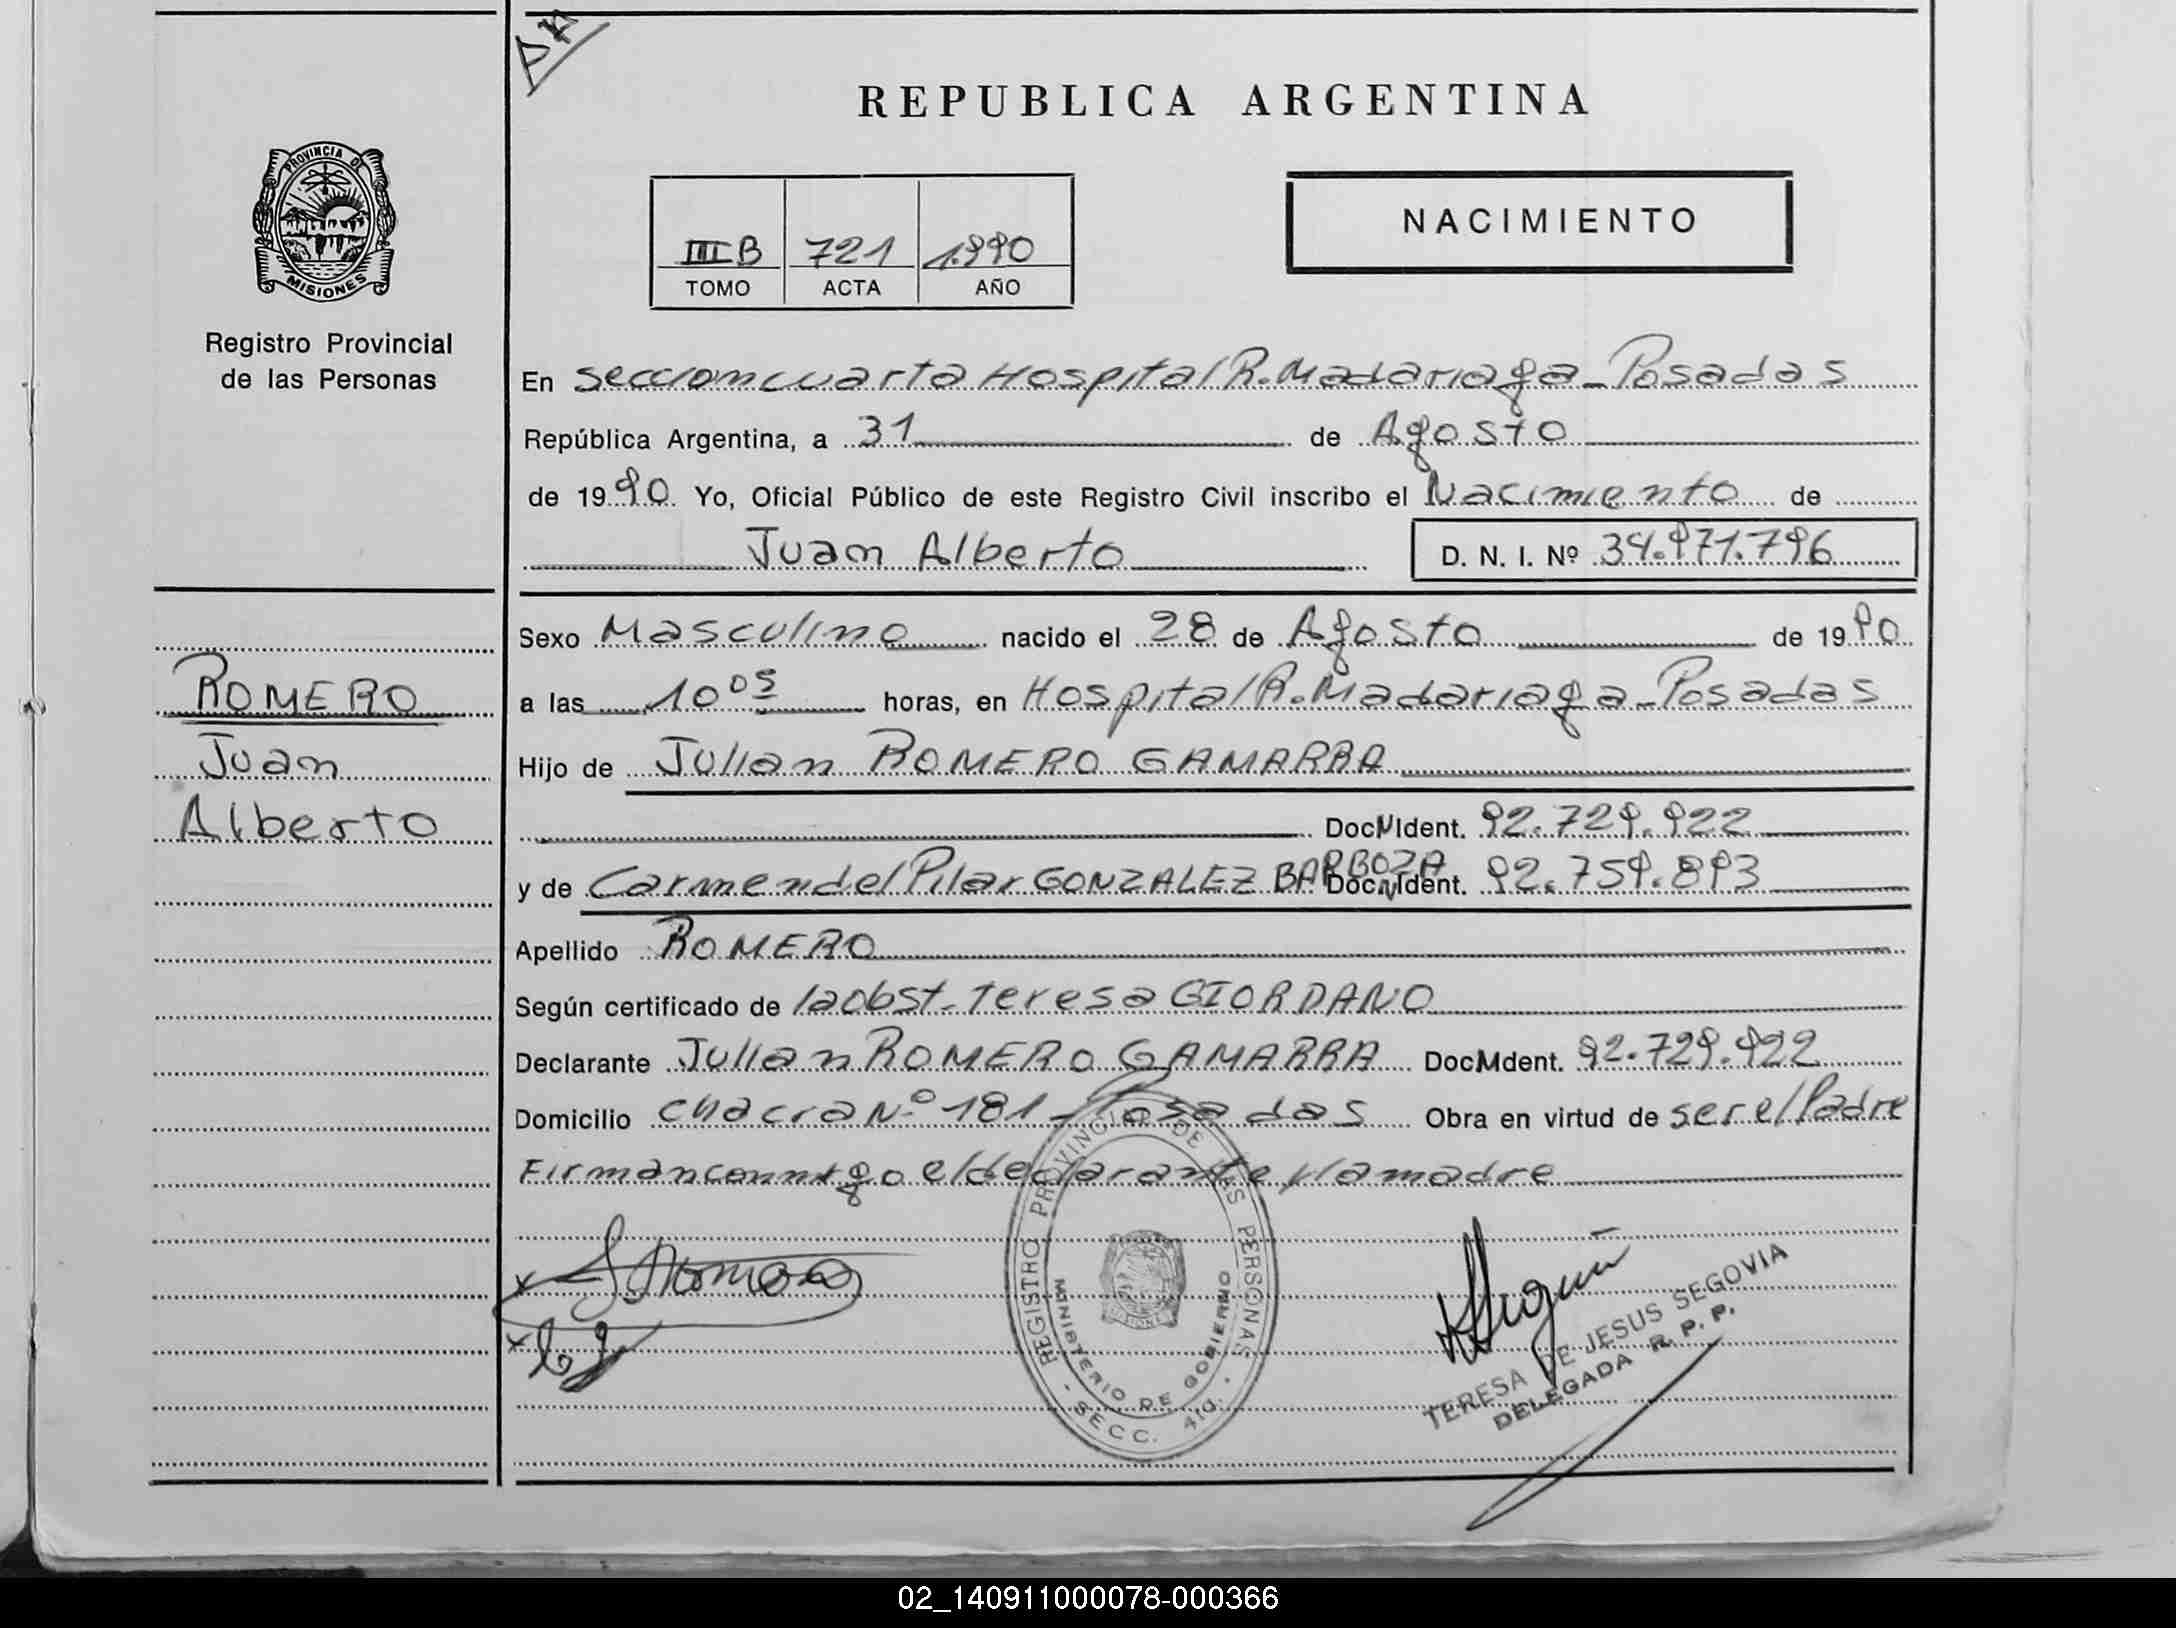 REPUBLICA ARGENTINA
PROVINCIA DE
MISIONES
Registro Provincial
de las Personas
III B 721 1.990
TOMO ACTA AÑO
NACIMIENTO
En seccion cuarta Hospital R. Madariaga - Posadas
República Argentina, a 31 de Agosto
de 1990 Yo, Oficial Público de este Registro Civil inscribo el Nacimiento de
Juan Alberto D. N. I. Nº 34.971.796
ROMERO
Juan
Alberto
Sexo Masculino nacido el 28 de Agosto de 1990
a las 10 05 horas, en Hospital R. Madariaga - Posadas
Hijo de Julian ROMERO GAMARRA
Doc N Ident. 92.729.922
y de Carmen del Pilar GONZALEZ BARBOZA Doc N Ident. 92.759.893
Apellido ROMERO
Según certificado de la obst. Teresa GIORDANO
Declarante Julian ROMERO GAMARRA Doc N Ident. 92.729.922
Domicilio chacra Nº 181 - Posadas Obra en virtud de ser el Padre
Firman conmigo el declarante y la madre
REGISTRO PROVINCIAL DE LAS PERSONAS
MINISTERIO DE GOBIERNO
- SECC. 4ta. -
MISIONES
TERESA DE JESUS SEGOVIA
DELEGADA R. P. P.
02_140911000078-000366